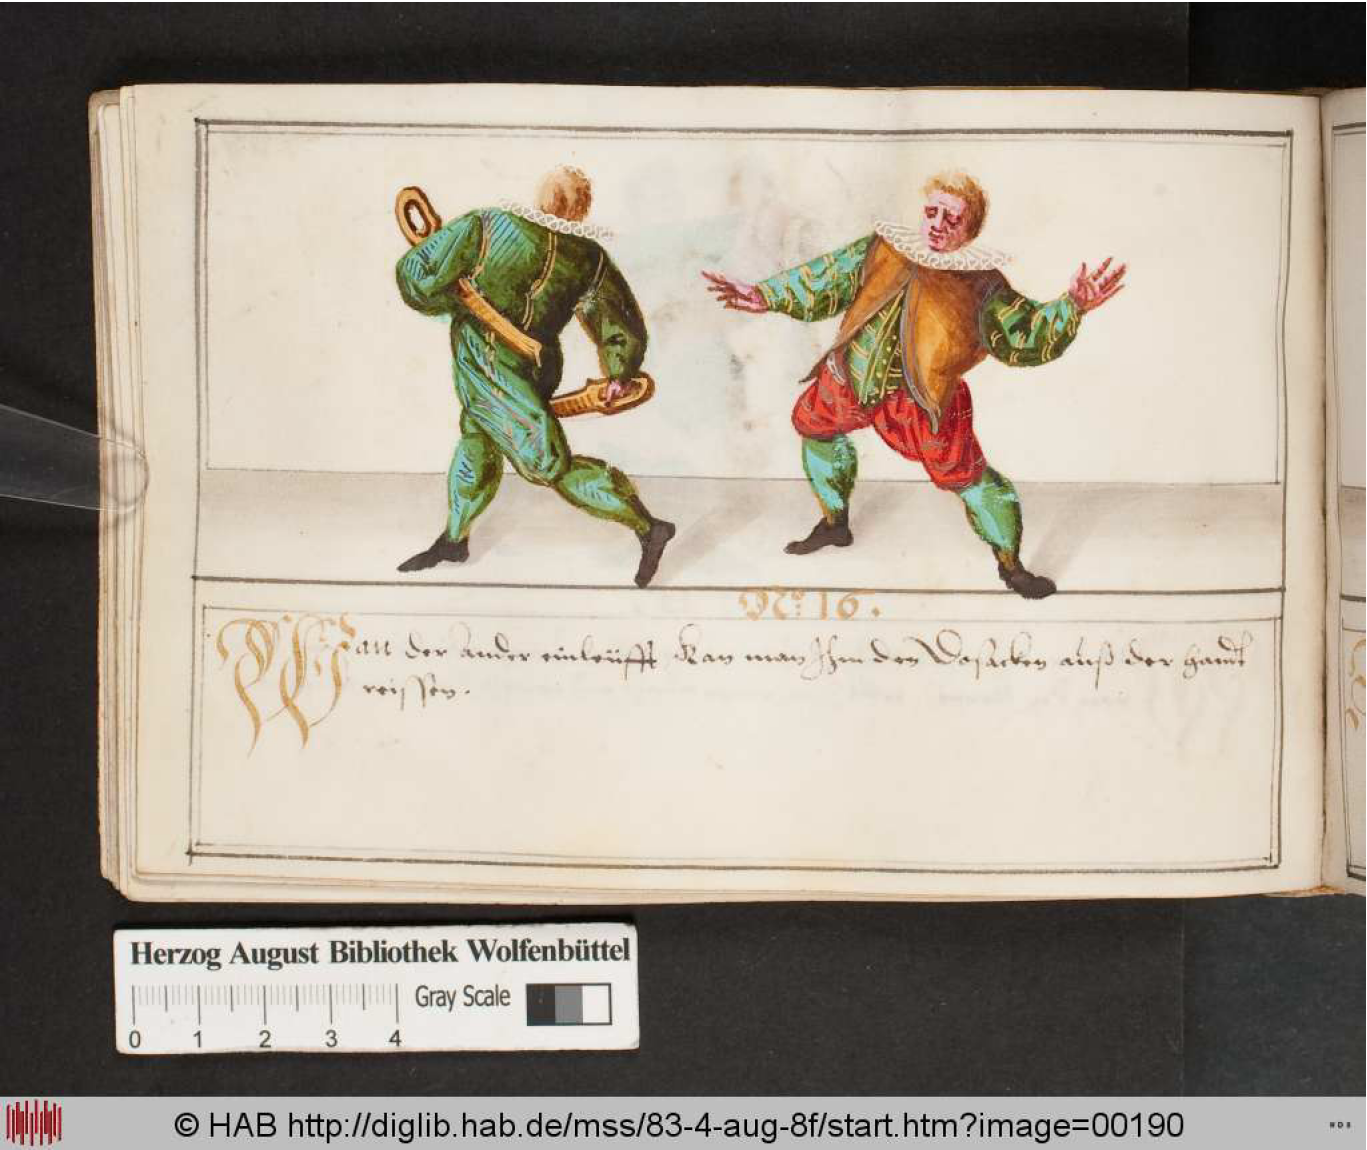 No: 16.
Wan der ander einleüfft Kan man Ihm den Dosacken auß der handt
reissen.
Herzog August Bibliothek Wolfenbüttel
Gray Scale
0 1 2 3 4
© HAB http://diglib.hab.de/mss/83-4-aug-8f/start.htm?image=00190